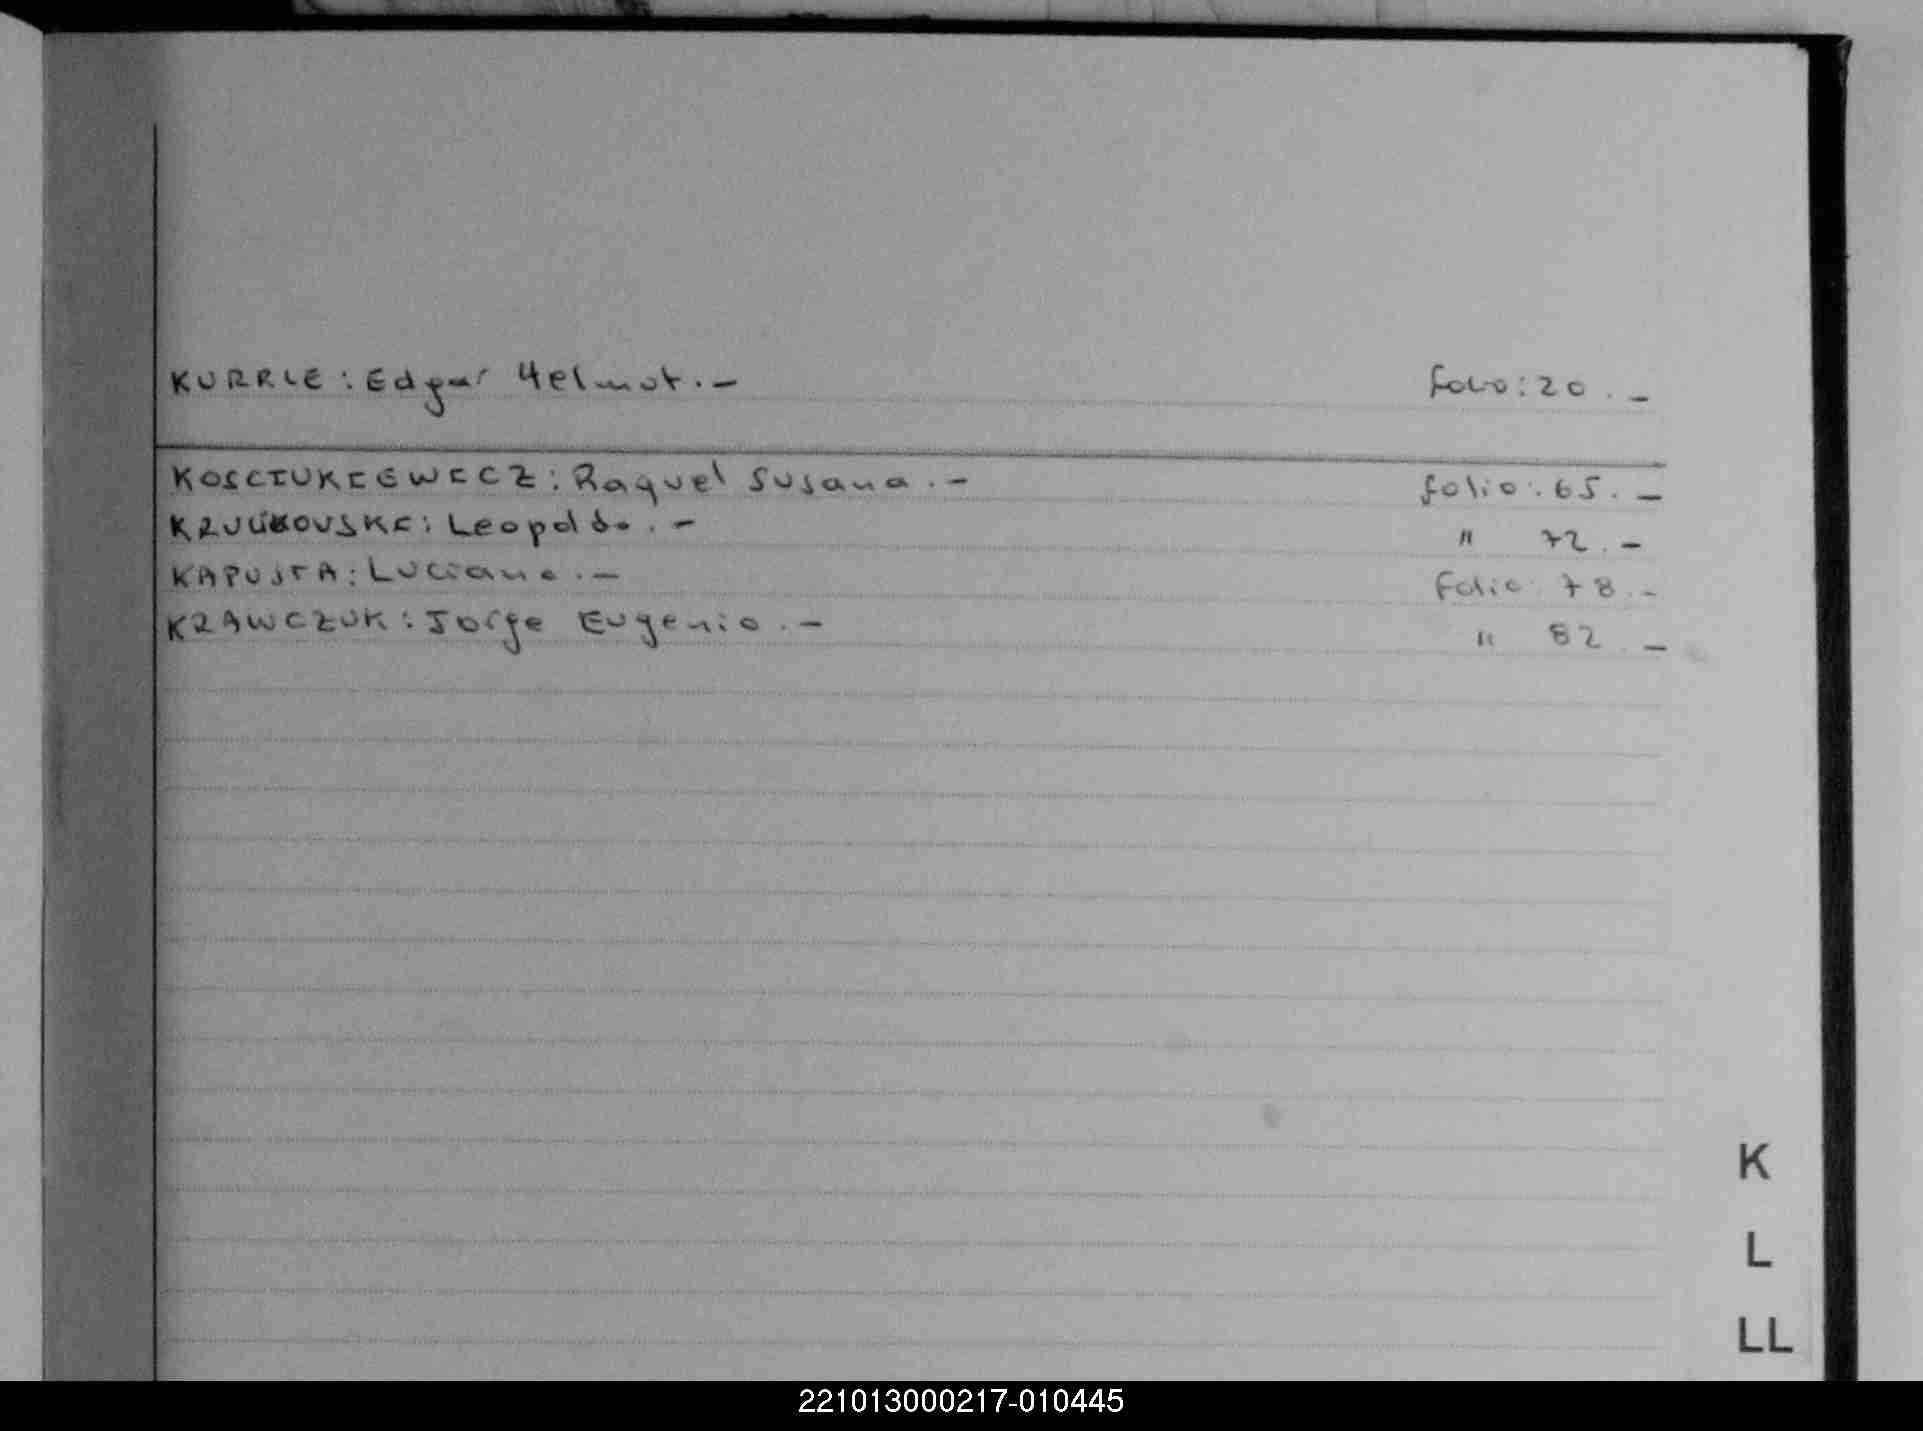 KURRLE: Edgar Helmut.- folio: 20.-
KOSCIUKIEWICZ: Raquel Susana.- folio: 65.-
KRULIKOVSKI: Leopoldo.- " 72.-
KAPUSTA: Luciano.- Folio: 78.-
KRAWCZUK: Jorge Eugenio.- " 82.-
K
L
LL
221013000217-010445